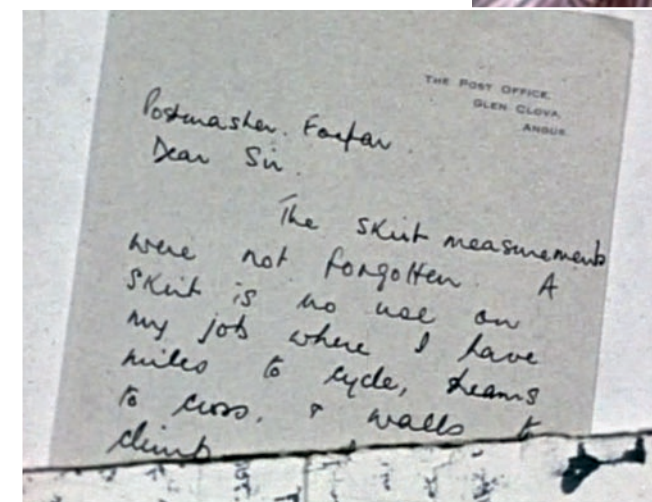 THE POST OFFICE,
GLEN CLOVA,
ANGUS.
Postmaster. Forfar.
Dear Sir.
The skirt measurements
were not forgotten. A
skirt is no use on
my job where I have
miles to cycle, streams
to cross, & walls to
climb